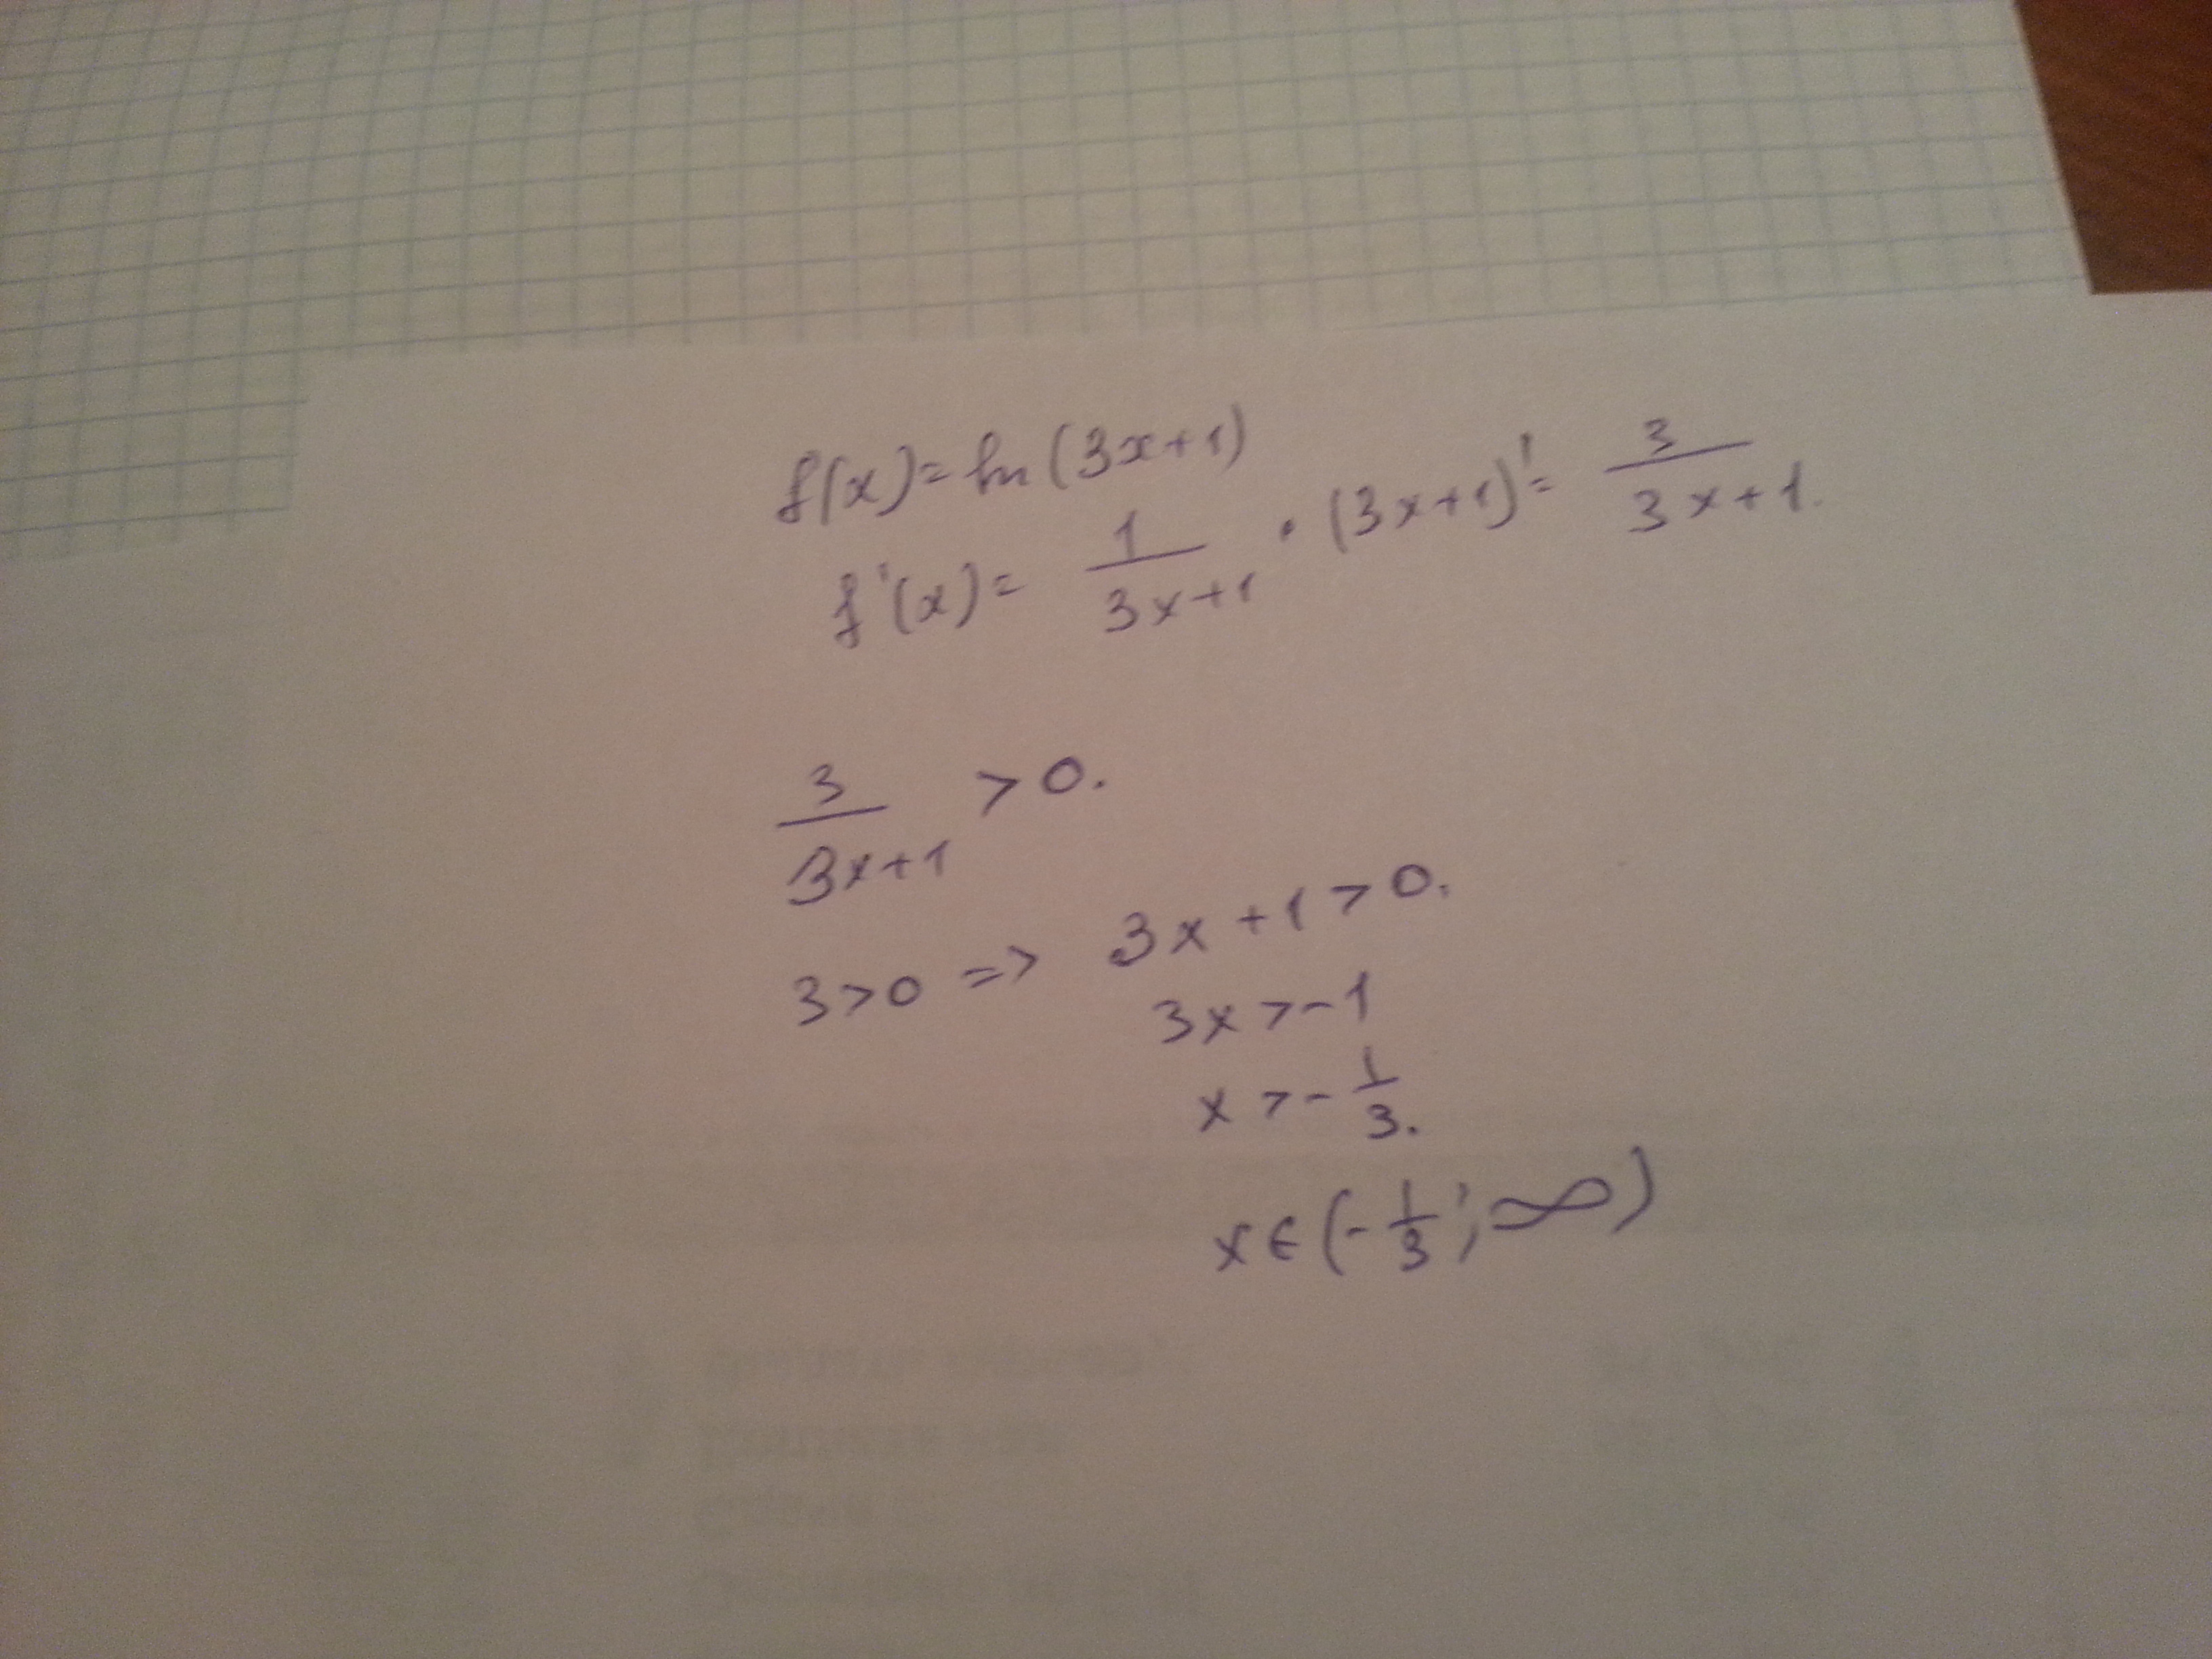 f(x)=ln(3x+1)
f'(x)= 1/(3x+1) · (3x+1)'= 3/(3x+1).
3/(3x+1) > 0.
3>0 => 3x+1>0.
3x>-1
x>-1/3.
x∈(-1/3; ∞)